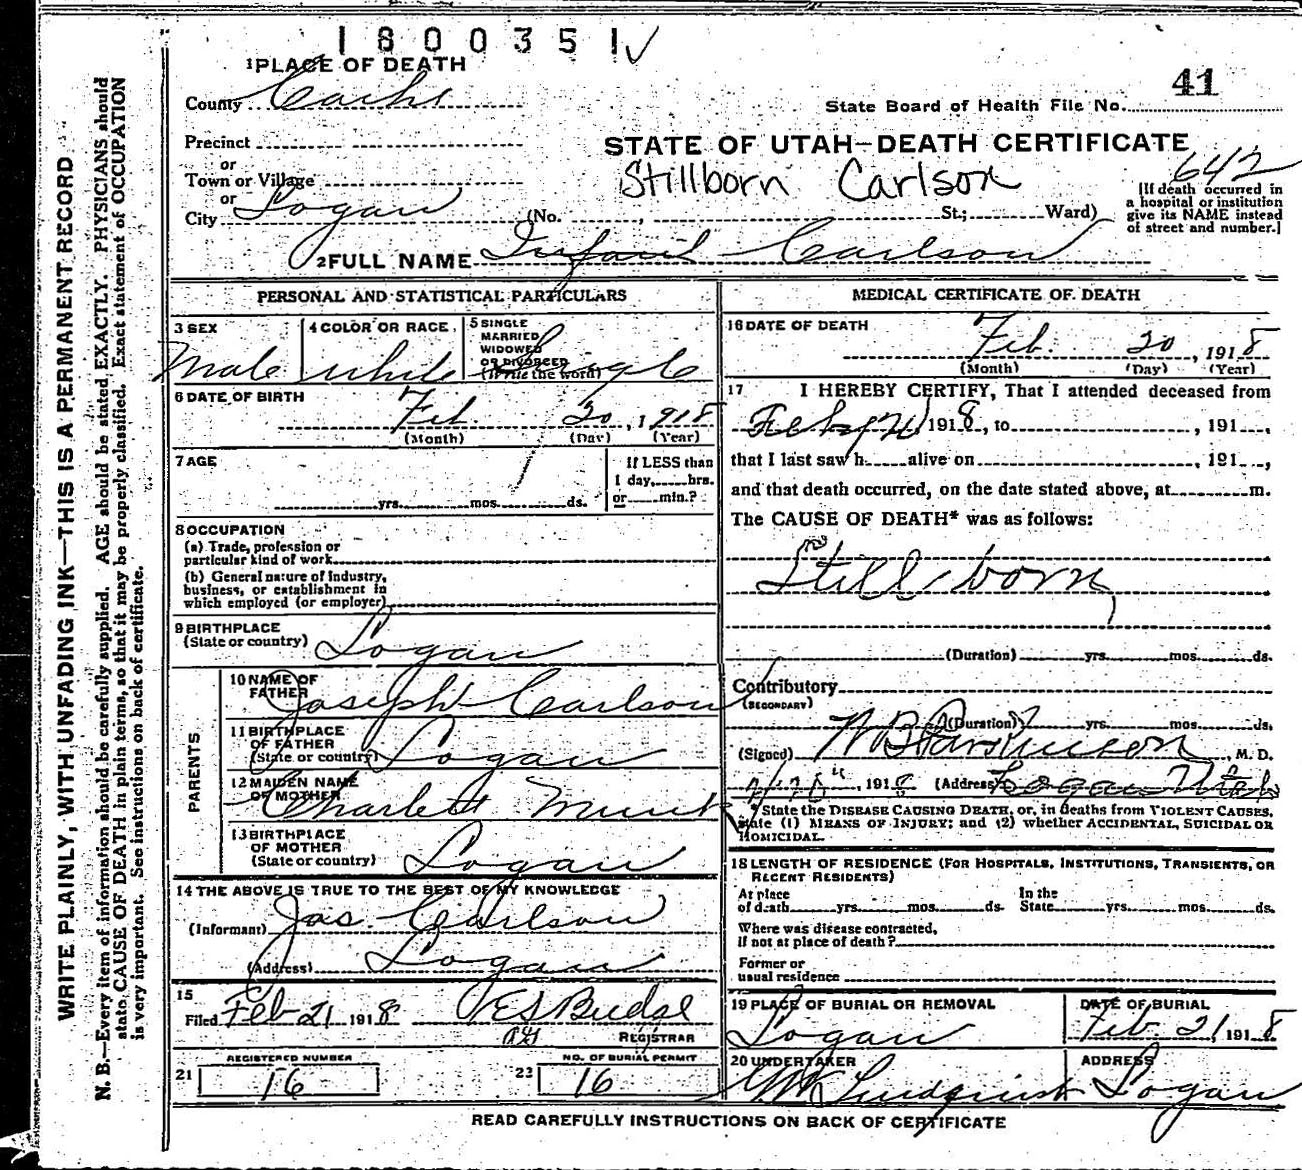 1800351✓
1 PLACE OF DEATH
County Cache
State Board of Health File No. 41
Precinct
STATE OF UTAH—DEATH CERTIFICATE
or
Town or Village
Stillborn Carlson
642
or
City Logan (No. , St.; Ward)
[If death occurred in
a hospital or institution
give its NAME instead
of street and number.]
2 FULL NAME Infant Carlson
PERSONAL AND STATISTICAL PARTICULARS
3 SEX
Male
4 COLOR OR RACE
White
5 SINGLE
MARRIED
WIDOWED
OR DIVORCED
(Write the word)
Single
6 DATE OF BIRTH
Feb. 20, 1918
(Month) (Day) (Year)
7 AGE
yrs. mos. ds.
If LESS than
1 day, hrs.
or min.?
8 OCCUPATION
(a) Trade, profession or
particular kind of work
(b) General nature of industry,
business, or establishment in
which employed (or employer)
9 BIRTHPLACE
(State or country) Logan
PARENTS
10 NAME OF
FATHER Joseph Carlson
11 BIRTHPLACE
OF FATHER
(State or country) Logan
12 MAIDEN NAME
OF MOTHER Charlett Munk
13 BIRTHPLACE
OF MOTHER
(State or country) Logan
14 THE ABOVE IS TRUE TO THE BEST OF MY KNOWLEDGE
(Informant) Jos. Carlson
(Address) Logan
15
Filed Feb 21 1918 E S Budge
REGISTRAR
REGISTERED NUMBER
21 16
NO. OF BURIAL PERMIT
23 16
MEDICAL CERTIFICATE OF DEATH
16 DATE OF DEATH
Feb. 20, 1918
(Month) (Day) (Year)
17 I HEREBY CERTIFY, That I attended deceased from
1918, to , 191 ,
that I last saw h alive on , 191 ,
and that death occurred, on the date stated above, at m.
The CAUSE OF DEATH* was as follows:
Still born
(Duration) yrs. mos. ds.
Contributory
(SECONDARY)
(Duration) yrs. mos. ds.
(Signed) W B Parkinson, M. D.
2/20, 1918 (Address) Logan Utah
*State the DISEASE CAUSING DEATH, or, in deaths from VIOLENT CAUSES,
state (1) MEANS OF INJURY; and (2) whether ACCIDENTAL, SUICIDAL OR
HOMICIDAL.
18 LENGTH OF RESIDENCE (FOR HOSPITALS, INSTITUTIONS, TRANSIENTS, OR
RECENT RESIDENTS)
At place
of death yrs. mos. ds.
In the
State yrs. mos. ds.
Where was disease contracted,
if not at place of death?
Former or
usual residence
19 PLACE OF BURIAL OR REMOVAL
Logan
DATE OF BURIAL
Feb 21, 1918
20 UNDERTAKER
ADDRESS
Logan
READ CAREFULLY INSTRUCTIONS ON BACK OF CERTIFICATE
WRITE PLAINLY, WITH UNFADING INK—THIS IS A PERMANENT RECORD
N. B.—Every item of information should be carefully supplied. AGE should be stated EXACTLY. PHYSICIANS should
state CAUSE OF DEATH in plain terms, so that it may be properly classified. Exact statement of OCCUPATION
is very important. See instructions on back of certificate.